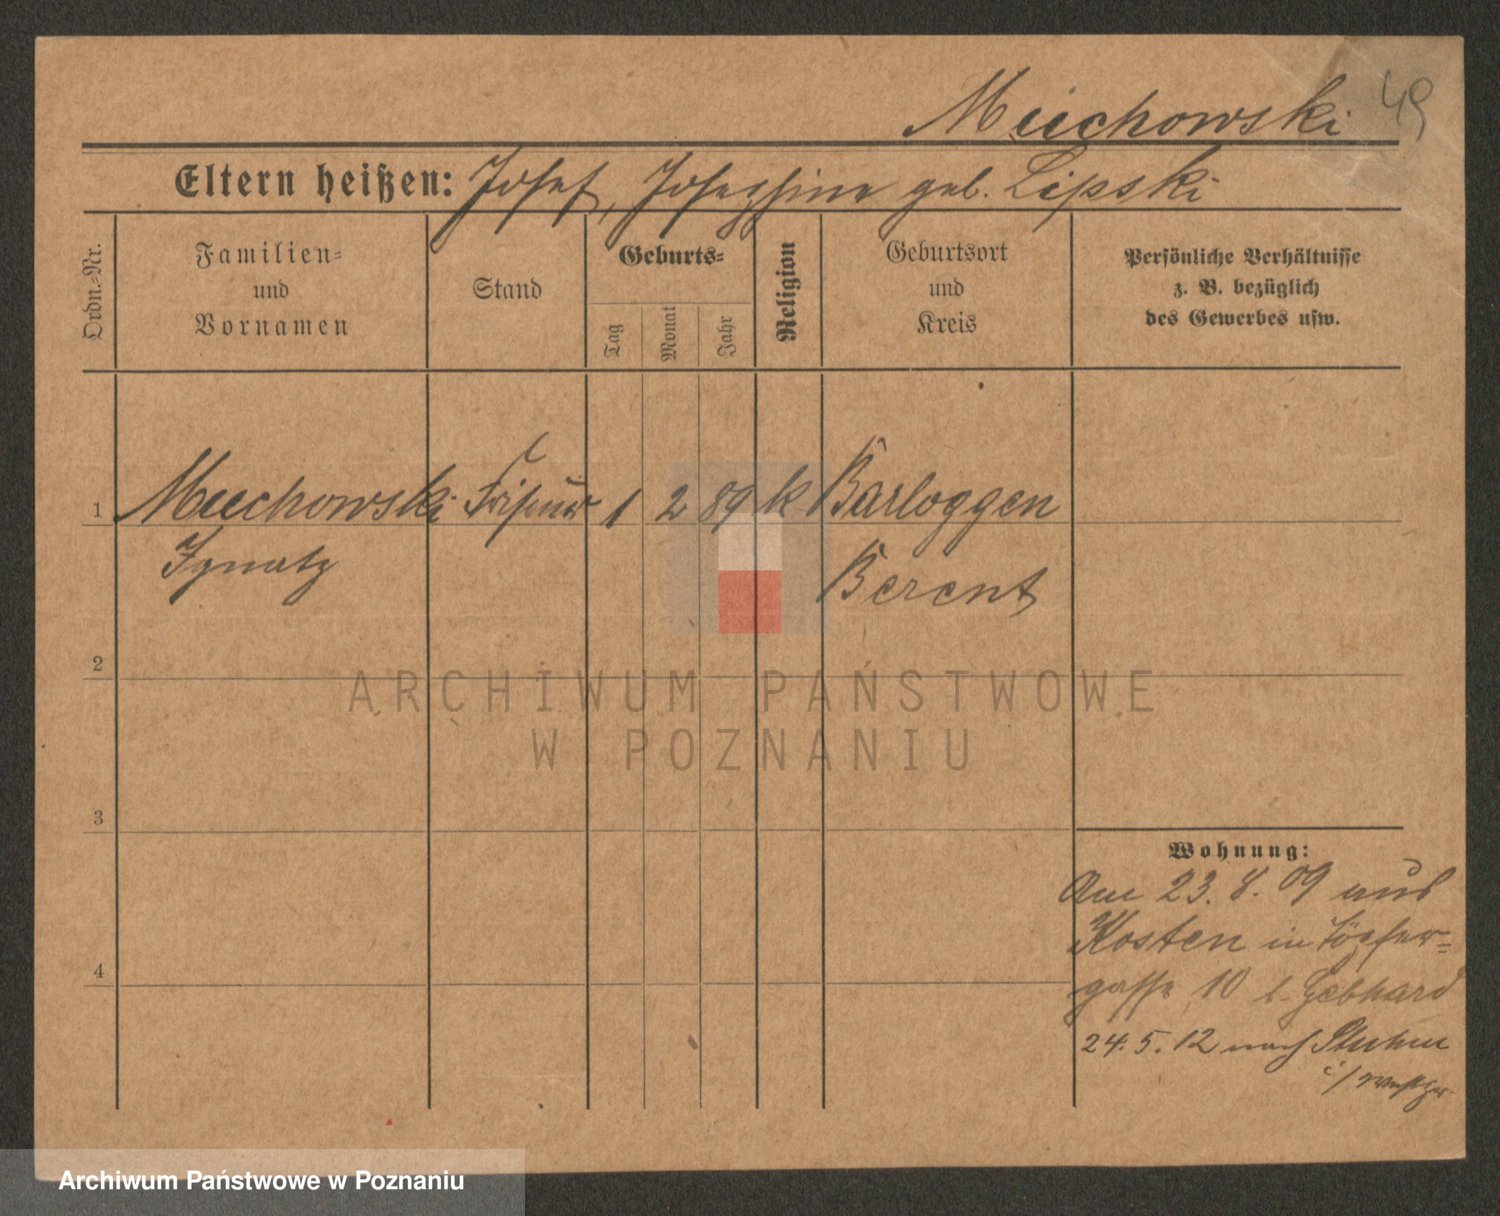 49
Muchowski
Eltern heißen: Josef, Josephine geb. Lipski
Ordn.-Nr.
Familien-
und
Vornamen
Stand
Geburts-
Tag
Monat
Jahr
Religion
Geburtsort
und
Kreis
Persönliche Verhältnisse
z. B. bezüglich
des Gewerbes usw.
1 Muchowski Friseur 1 2 89 k Barloggen
Ignatz Berent
2
3
4
ARCHIWUM PAŃSTWOWE
W POZNANIU
Wohnung:
Am 23.8.09 aus
Kosten in Töpfer=
gasse 10 b. Gebhard
24.5.12 nach Stuhm
i/ Westpr.
Archiwum Państwowe w Poznaniu